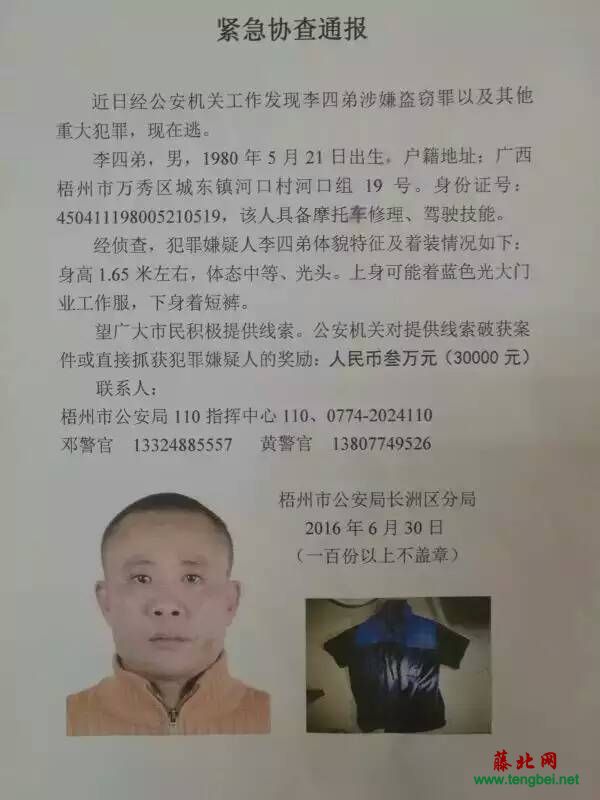 紧急协查通报
近日经公安机关工作发现李四弟涉嫌盗窃罪以及其他
重大犯罪，现在逃。
李四弟，男，1980 年 5 月 21 日出生，户籍地址：广西
梧州市万秀区城东镇河口村河口组 19 号。身份证号：
450411198005210519，该人具备摩托车修理、驾驶技能。
经侦查，犯罪嫌疑人李四弟体貌特征及着装情况如下：
身高 1.65 米左右，体态中等、光头。上身可能着蓝色光大门
业工作服，下身着短裤。
望广大市民积极提供线索。公安机关对提供线索破获案
件或直接抓获犯罪嫌疑人的奖励：人民币叁万元（30000 元）
联系人：
梧州市公安局 110 指挥中心 110、0774-2024110
邓警官 13324885557 黄警官 13807749526
梧州市公安局长洲区分局
2016 年 6 月 30 日
（一百份以上不盖章）
藤北网
www.tengbei.net